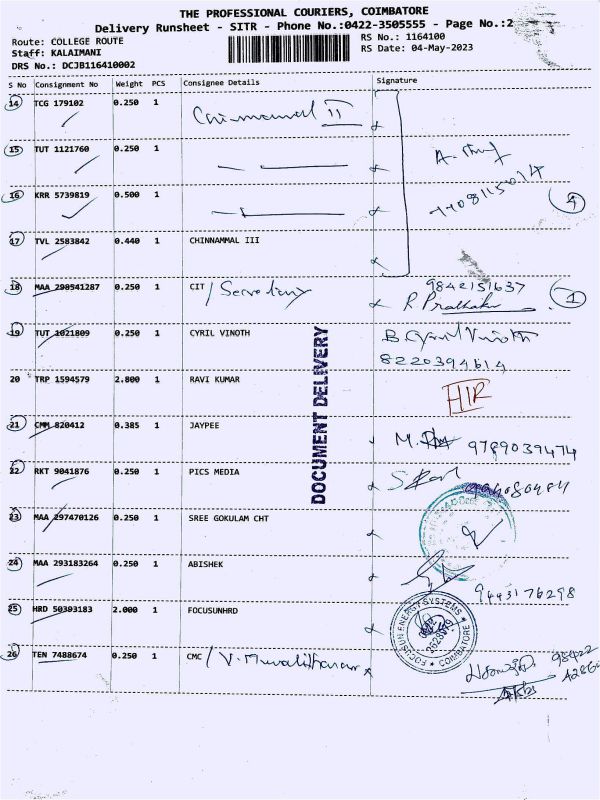 THE PROFESSIONAL COURIERS, COIMBATORE
Delivery Runsheet - SITR - Phone No.:0422-3505555 - Page No.:2
Route: COLLEGE ROUTE
Staff: KALAIMANI
DRS No.: DCJB116410002
RS No.: 1164100
RS Date: 04-May-2023
S No Consignment No Weight PCS Consignee Details Signature
14 TCG 179102 0.250 1 Chinnammal II
15 TUT 1121760 0.250 1
16 KRR 5739819 0.500 1
4
17 TVL 2583842 0.440 1 CHINNAMMAL III
18 MAA 298541287 0.250 1 CIT / Secretary 9842151637
R. Prabhakar 1
19 TUT 1021809 0.250 1 CYRIL VINOTH B. Cyril Vinoth
8220394614
20 TRP 1594579 2.800 1 RAVI KUMAR HIR
21 CMM 820412 0.385 1 JAYPEE M. 9789039474
22 RKT 9041876 0.250 1 PICS MEDIA
23 MAA 297470126 0.250 1 SREE GOKULAM CHT
24 MAA 293183264 0.250 1 ABISHEK 9443176298
25 HRD 50303183 2.000 1 FOCUSUNHRD
FOCUSUN ENERGY SYSTEMS
COIMBATORE
26 TEN 7488674 0.250 1 CMC /
DOCUMENT DELIVERY